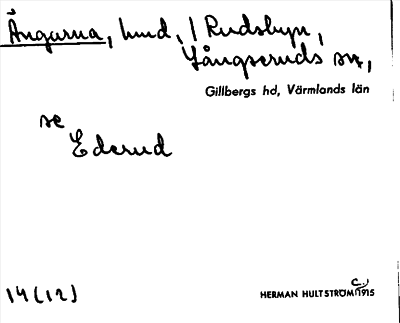 Ängarna, hmd, / Rudsbyn,
Långseruds sn,
Gillbergs hd, Värmlands län
se
Ederud
14(12)
HERMAN HULTSTRÖM C:) 1915